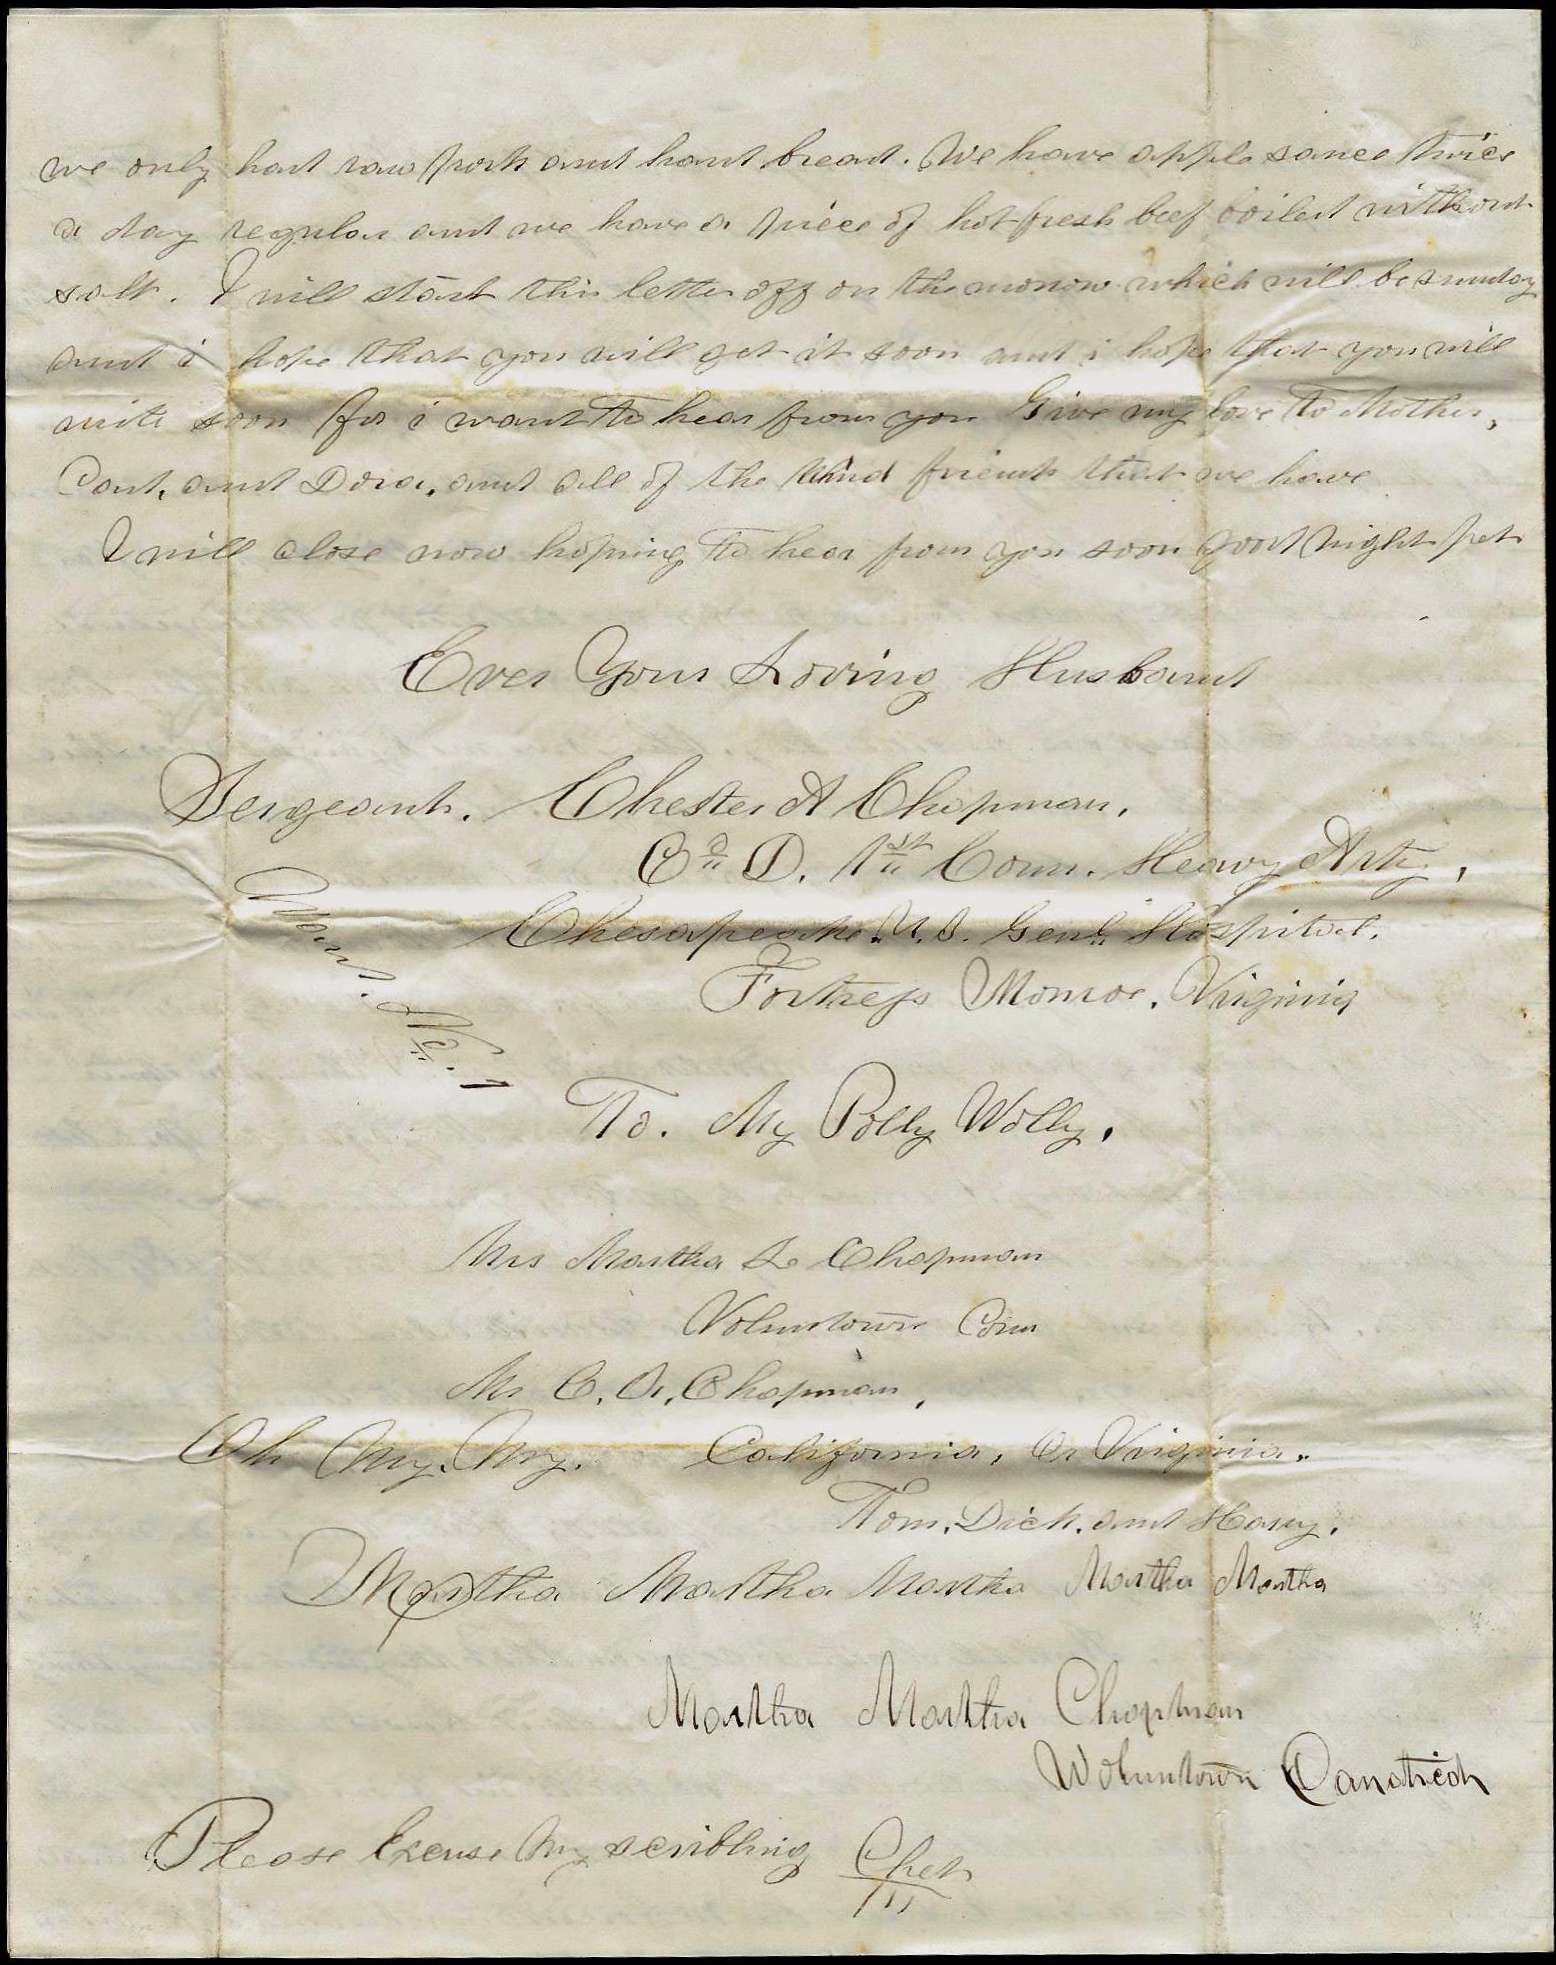 we only had raw pork and hard bread. We have apple sauce twice
a day regular and we have a piece of hot fresh beef boiled without
salt. I will start this letter off on the morrow which will be sunday
and i hope that you will get it soon and i hope that you will
write soon for i want to hear from you Give my love to Mother,
and Dora, and all of the kind friends that we have
I will close now hoping to hear from you soon good night pet
Ever Your Loving Husband
Sergeant. Chester A Chapman.
Co D. 1st Conn. Heavy Arty,
Chesapeake U.S. Genl. Hospital.
Fortress Monroe. Virginia
Ward. No. 1
To. My Polly Wolly.
Mrs Martha L Chapman
Voluntown Conn
Mr C. A. Chapman,
Oh My. My. California, Or Virginia.
Tom. Dick. and Harry.
Martha Martha Martha Martha Martha
Martha Martha Chapman
Woluntown Canaticoh
Please Excuse My scribling Chet